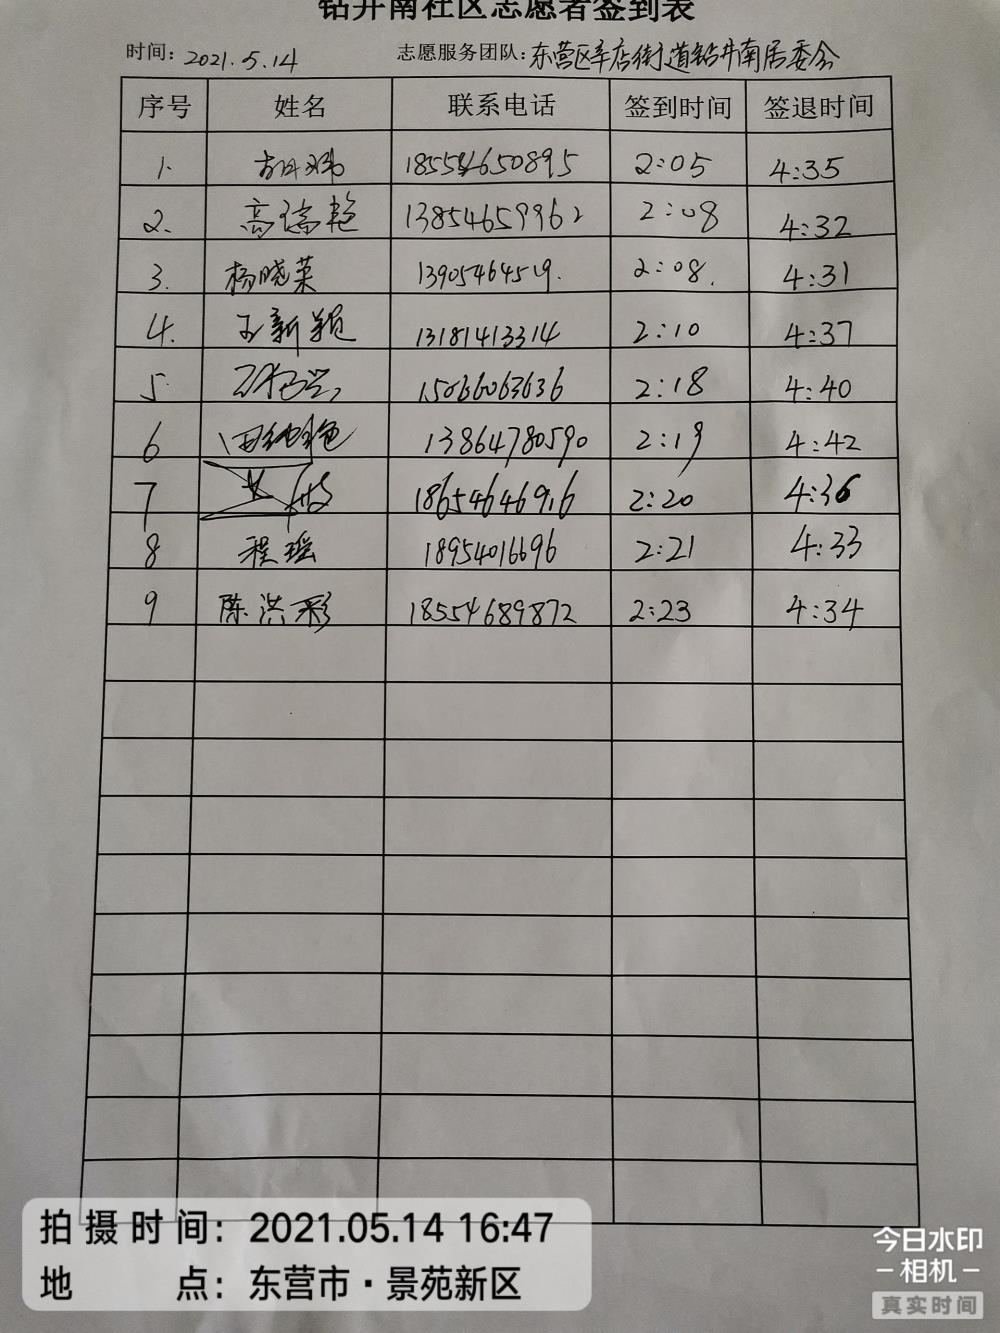 钻井南社区志愿者签到表
时间：2021.5.14 志愿服务团队：东营区辛店街道钻井南居委会
序号 姓名 联系电话 签到时间 签退时间
1. 18554650895 2:05 4:35
2. 高瑞艳 13854659962 2:08 4:32
3. 杨晓荣 13905464519. 2:08. 4:31
4. 王新颖 13181413314 2:10 4:37
5 15066063636 2:18 4:40
6 田纯艳 13864780590 2:19 4:42
7 18654646916 2:20 4:36
8 程瑶 18954016696 2:21 4:33
9 陈洪彩 18554689872 2:23 4:34
拍摄时间：2021.05.14 16:47
地点：东营市·景苑新区
今日水印
-相机-
真实时间